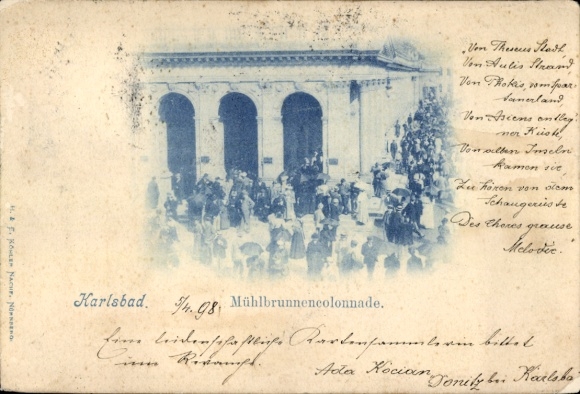 "Von Theseus Stadt,
Von Aulis Strand,
Von Phokis, vom Spar-
tanerland,
Von Asiens entleg'
ner Küste,
Von allen Inseln
kamen sie,
Zu hören von dem
Schaugerüste
Des Chores grause
Melodie."
Karlsbad. 5/4. 98. Mühlbrunnencolonnade.
Eine leidenschaftliche Kartensammlerin bittet
um Revanche.
Ada Kocian
Donitz bei Karlsba